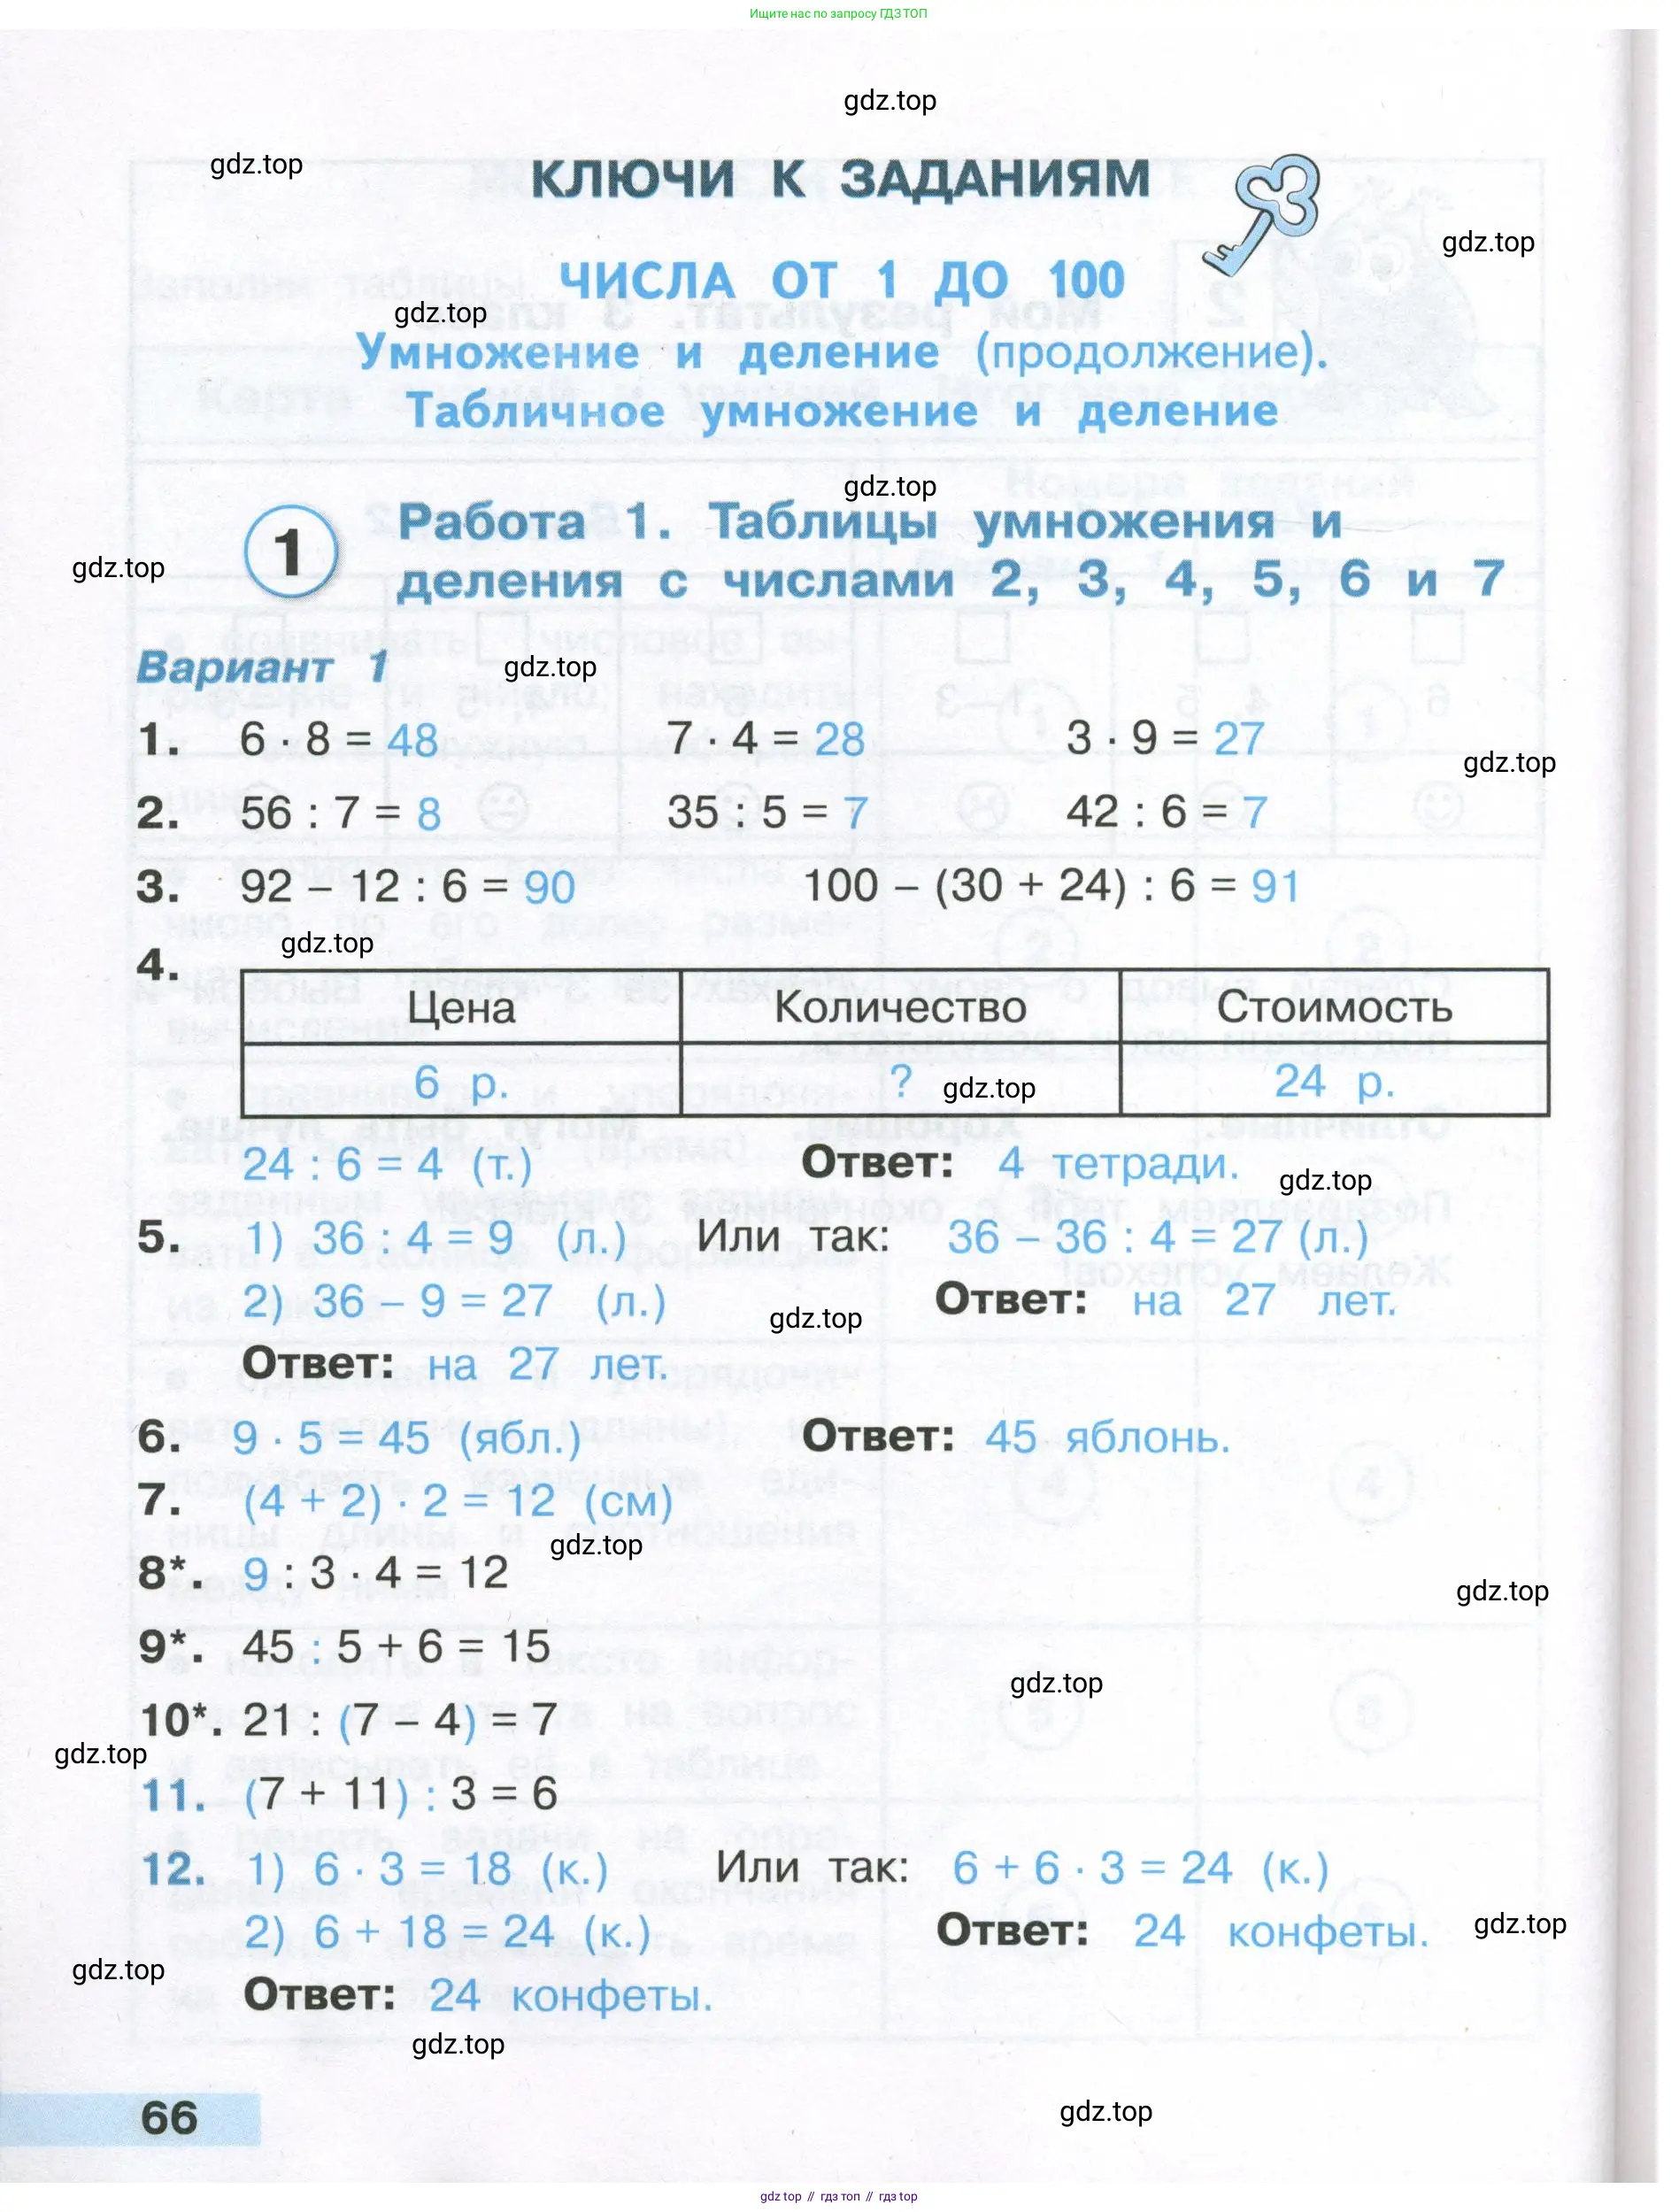 Ищите нас по запросу ГДЗ ТОП
gdz.top
gdz.top
КЛЮЧИ К ЗАДАНИЯМ
gdz.top
ЧИСЛА ОТ 1 ДО 100
gdz.top
Умножение и деление (продолжение).
Табличное умножение и деление
gdz.top
1 Работа 1. Таблицы умножения и
деления с числами 2, 3, 4, 5, 6 и 7
gdz.top
Вариант 1
gdz.top
1. 6 · 8 = 48 7 · 4 = 28 3 · 9 = 27
gdz.top
2. 56 : 7 = 8 35 : 5 = 7 42 : 6 = 7
3. 92 – 12 : 6 = 90 100 – (30 + 24) : 6 = 91
gdz.top
4.
Цена Количество Стоимость
6 р. ? 24 р.
gdz.top
24 : 6 = 4 (т.) Ответ: 4 тетради.
gdz.top
5. 1) 36 : 4 = 9 (л.) Или так: 36 – 36 : 4 = 27 (л.)
2) 36 – 9 = 27 (л.) Ответ: на 27 лет.
gdz.top
Ответ: на 27 лет.
6. 9 · 5 = 45 (ябл.) Ответ: 45 яблонь.
7. (4 + 2) · 2 = 12 (см)
gdz.top
8*. 9 : 3 · 4 = 12
gdz.top
9*. 45 : 5 + 6 = 15
gdz.top
10*. 21 : (7 – 4) = 7
gdz.top
11. (7 + 11) : 3 = 6
12. 1) 6 · 3 = 18 (к.) Или так: 6 + 6 · 3 = 24 (к.)
2) 6 + 18 = 24 (к.) Ответ: 24 конфеты.
gdz.top
gdz.top
Ответ: 24 конфеты.
gdz.top
66
gdz.top
gdz top // гдз топ // gdz top